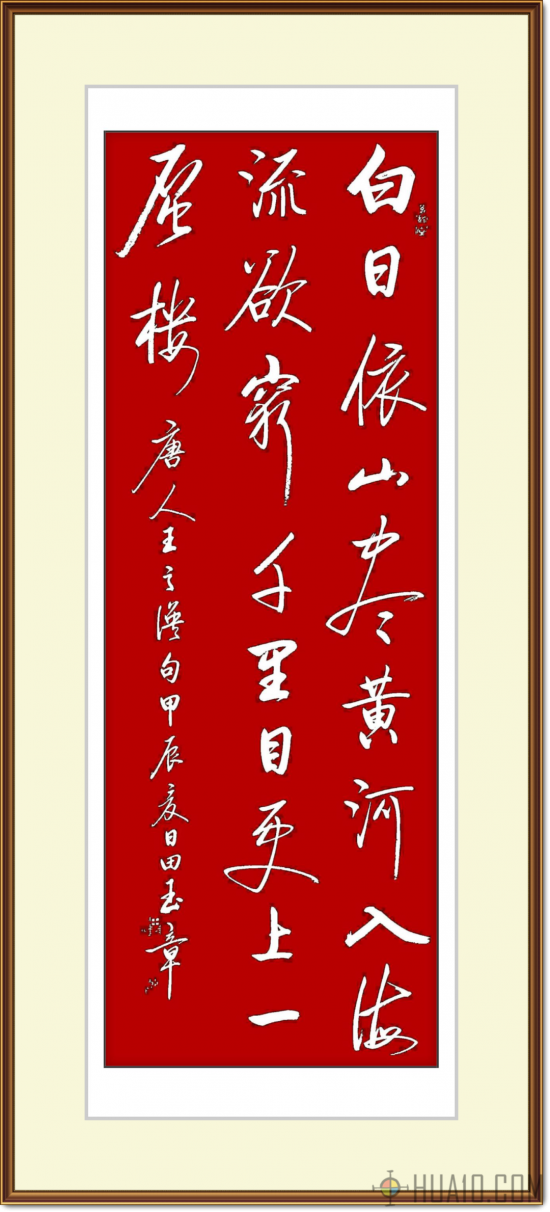 白日依山尽黄河入海
流欲穷千里目更上一
层楼 唐人王之涣句甲辰夏日田玉章
HUA10.COM